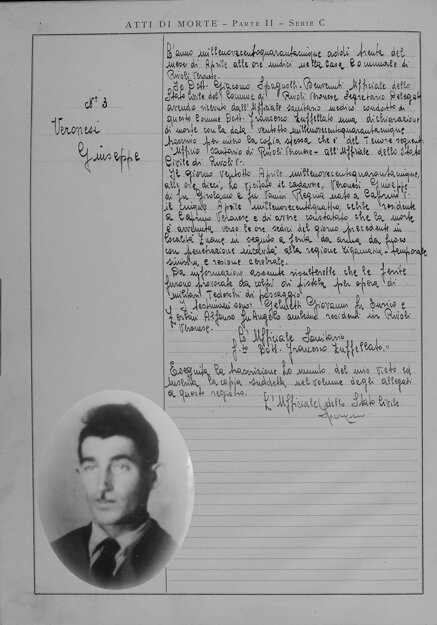 ATTI DI MORTE - PARTE II - SERIE C
N° 3
Veronesi
Giuseppe
L'anno millenovecentoquarantacinque addì trenta del
mese di Aprile alle ore undici nella Casa Comunale di
Rivoli Veronese.
Io Dott. Giacomo Spagnolli-Benvenuti Ufficiale dello
Stato Civile del Comune di Rivoli Veronese Segretario Delegato
avendo ricevuto dall'Ufficiale sanitario medico condotto di
questo Comune Dott. Francesco Zuffellato una dichiarazione
di morte con la data ventotto millenovecentoquarantacinque
per mitro la copia stessa che è del tenore seguente:
Ufficio Sanitario di Rivoli Veronese - all'Ufficiale dello Stato
Civile di Rivoli V.
Il giorno ventotto Aprile millenovecentoquarantacinque,
alle ore dieci, ho visitato il cadavere, Veronesi Giuseppe
di fu Girolamo e fu Regina nato a Caprino V.
il cinque Aprile residente
a Caprino Veronese e di avere constatato che la morte
è avvenuta verso le ore sedici del giorno precedente in
località Zuane in seguito a ferita da arma da fuoco
con penetrazione multipla alla regione temporale
sinistra e regione cerebrale.
Da informazioni assunte risulterebbe che le ferite
furono provocate da colpi di pistola per opera di
militari Tedeschi di passaggio.
I testimoni sono: Giovanni fu Enrico e
Alfonso fu Angelo ambedue residenti in Rivoli
Veronese.
L'Ufficiale Sanitario
f.to Dott. Francesco Zuffellato."
Eseguita la trascrizione ho munito del mio visto ed
inserita la copia suddetta nel volume degli allegati
a questo registro.
L'Ufficiale dello Stato Civile